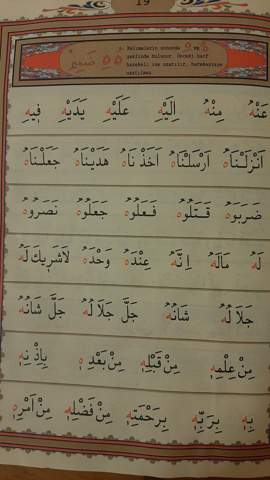 19
ضَمِيرْ هُ هُ Kelimelerin sonunda ve
şeklinde bulunur. Önceki harf
harekeli ise uzatılır, harekesizse
uzatılmaz
عَنْهُ مِنْهُ اِلَيْهِ عَلَيْهِ يَدَيْهِ فِيهِ
اَنْزَلْنَاهُ اَرْسَلْنَاهُ اَخَذْنَاهُ هَدَيْنَاهُ جَعَلْنَاهُ
ضَرَبُوهُ قَتَلُوهُ فَعَلُوهُ جَعَلُوهُ نَصَرُوهُ
لَهُ مَالَهُ اِنَّهُ عِنْدَهُ وَحْدَهُ لَاشَرِيكَ لَهُ
جَلَالُهُ شَانُهُ جَلَّ جَلَالُهُ جَلَّ شَانُهُ
مِنْ عِلْمِهِ مِنْ قَبْلِهِ مِنْ بَعْدِهِ بِاِذْنِهِ
بِهِ بِرَبِّهِ بِرَحْمَتِهِ مِنْ فَضْلِهِ مِنْ اَمْرِهِ